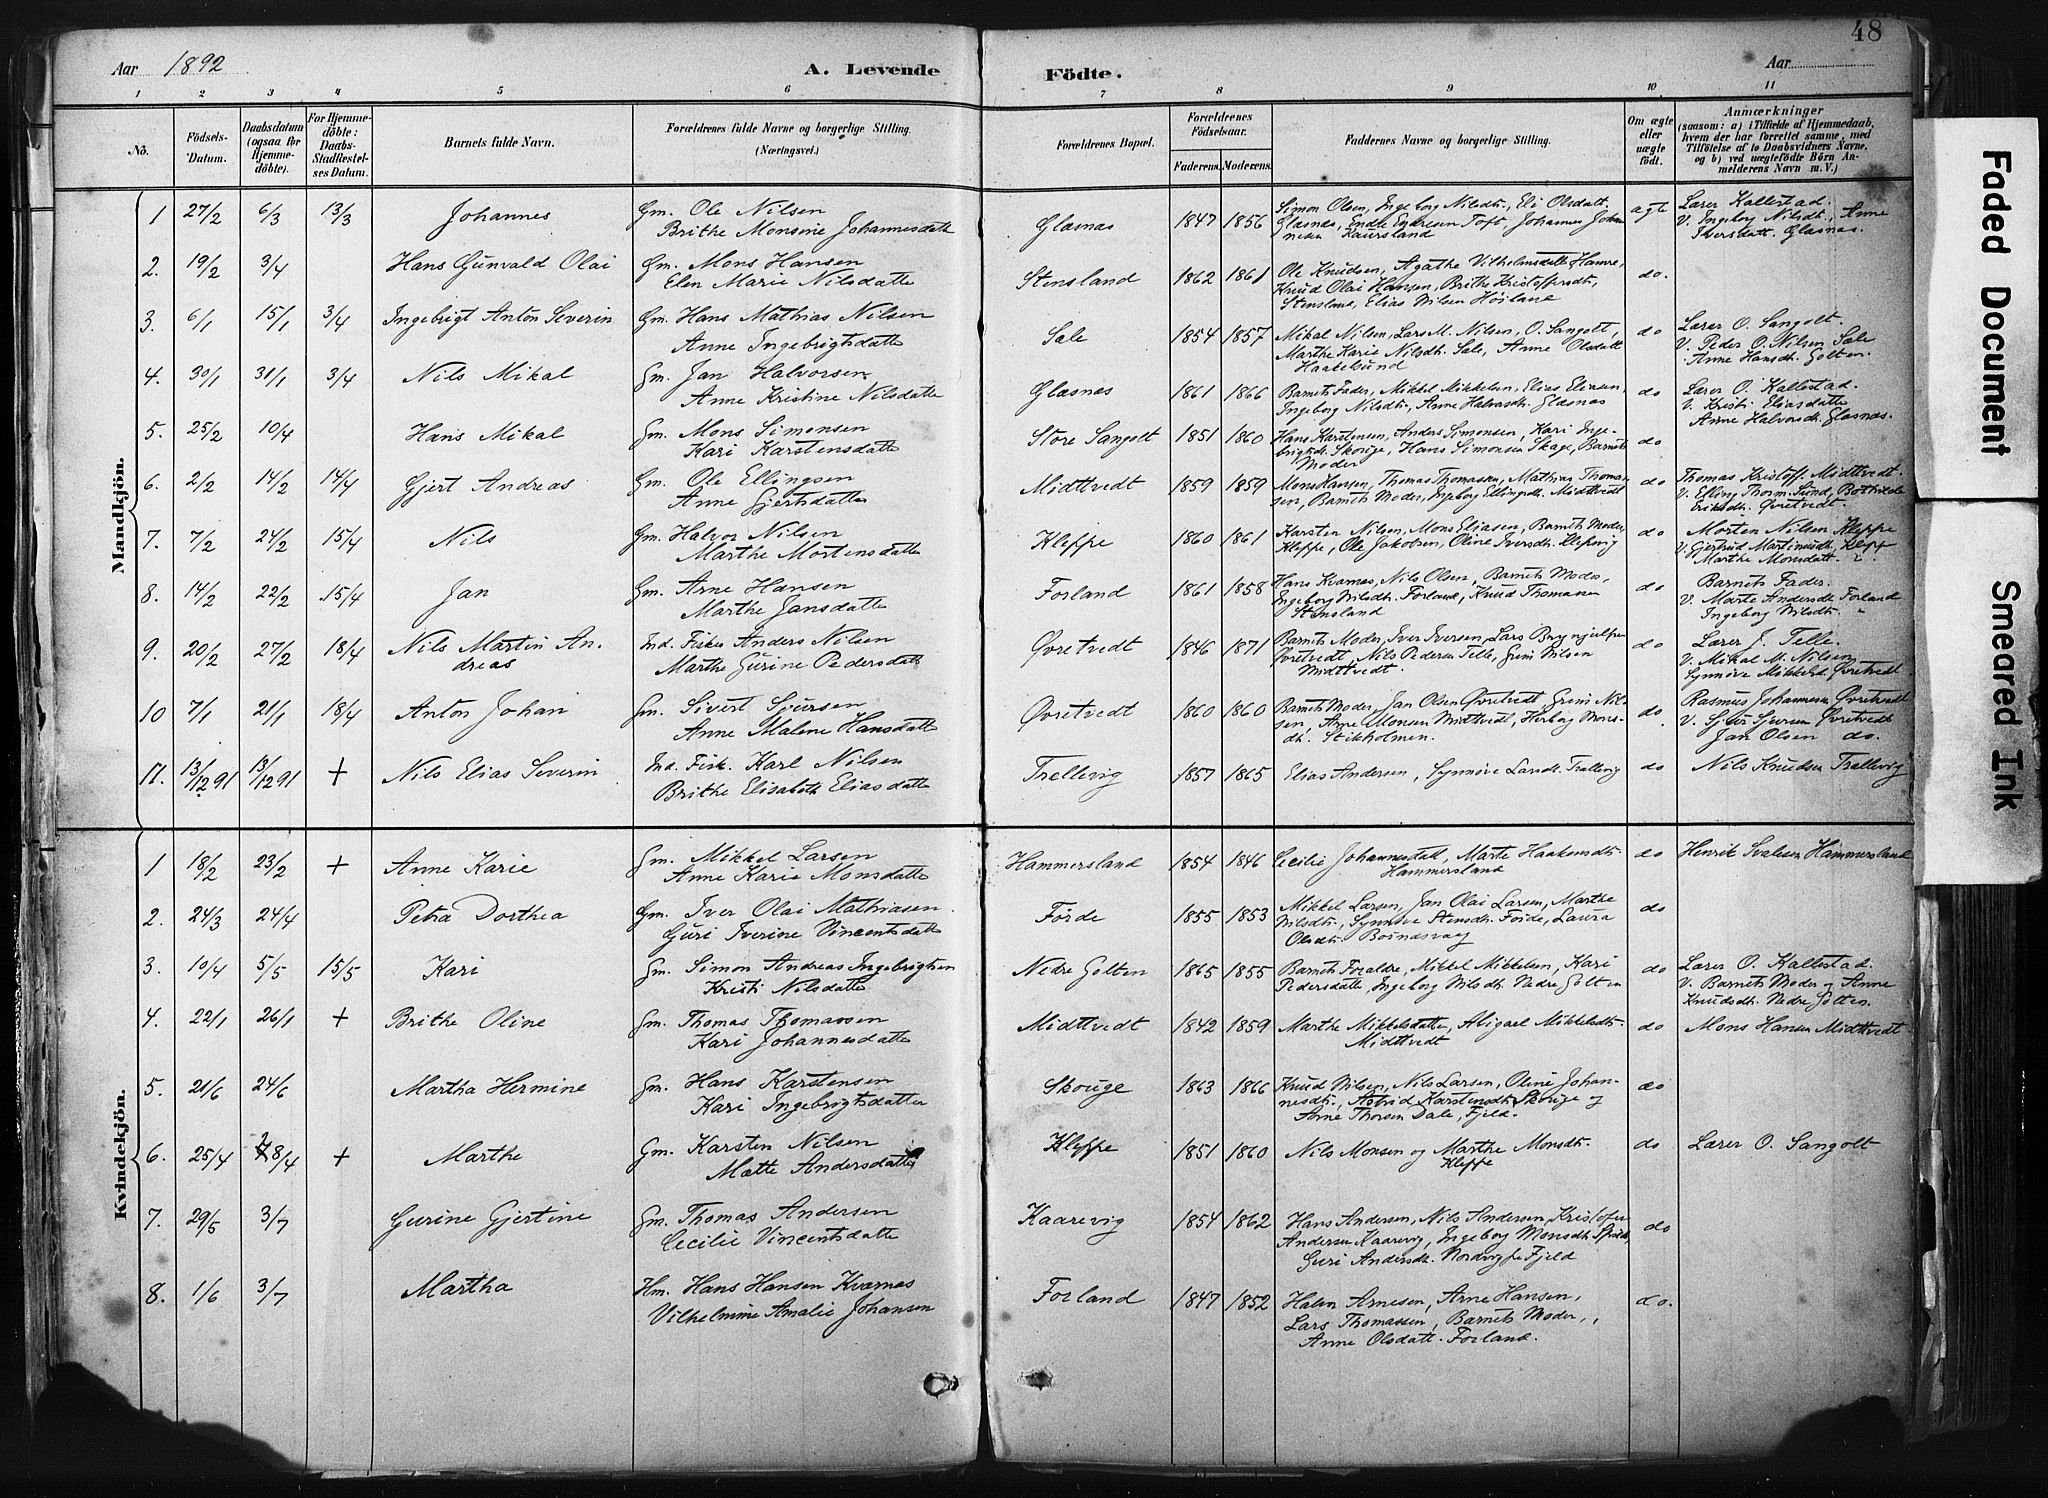 48
Aar 1892
A. Levende Födte.
Aar
1 2 3 4 5 6 7 8 9 10 11
No.
Födsels-Datum.
Daabsdatum (ogsaa for Hjemmedöbte).
For Hjemmedöbte: Daabs-Stadfestelses Datum.
Barnets fulde Navn.
Forældrenes fulde Navne og borgerlige Stilling. (Næringsvei.)
Forældrenes Bopæl.
Forældrenes Födselsaar.
Faderens. Moderens.
Faddernes Navne og borgerlige Stilling.
Om ægte eller uægte födt.
Anmærkninger
(saasom: a) i Tilfælde af Hjemmedaab, hvem der har forrettet samme, med Tilföielse af to Daabsvidners Navne, og b) ved uægtefödte Börn Anmelderens Navn m. V.)
Mandkjön.
1 27/2 6/3 13/3 Johannes Gm. Ole Nilsen Brithe Monsine Johannesdatte Glæsnæs 1847 1856 Simon Olsen, Ingeborg Nilsdt., Eli Olsdatt. Glæsnæs, Endre Toft, Johannes Johannesen Kaursland ægte Lærer Kallestad. V. Ingeborg Nilsdt., Anne Iversdatt. Glæsnæs.
2. 19/2 3/4 Hans Gunvald Olai Gm. Mons Hansen Elen Marie Nilsdatte Stensland 1862 1861 Ole Knudsen, Agathe Vilhelmsdatte Hamre, Knud Olai Hansen, Brithe Kristoffersdt., Stensland, Elias Nilsen Høiland do.
3. 6/1 15/1 3/4 Ingebrigt Anton Severin Gm. Hans Mathias Nilsen Anne Ingebrigtsdatte Sale 1854 1857 Mikal Nilsen, Lars M. Nilsen, O. Sangolt, Marthe Karie Nilsdt. Sale, Anne Olsdatte Haakelsund do Lærer O. Sangolt. V. Peder O. Nilsen Sale Anne Hansdt. Golten.
4. 30/1 31/1 3/4 Nils Mikal Gm. Jan Halvorsen Anne Kristine Nilsdatte Glæsnæs 1861 1866 Barnets Fader, Mikkel Mikkelsen, Elias Eliasen, Ingeborg Nilsdt., Anne Halvorsdt. Glæsnæs do Lærer O. Kallestad. V. Kristi Eliasdatte Anne Halvorsdt. Glæsnæs.
5. 25/2 10/4 Hans Mikal Gm. Mons Simonsen Kari Karstensdatte Store Sangolt 1851 1860 Hans Karstensen, Anders Simonsen, Kari Ingebrigtsdt. Skouge, Hans Simonsen Skage, Barnets Moder do
6. 2/2 14/2 14/4 Gjert Andreas Gm. Ole Ellingsen Anne Gjertsdatte Midttvedt 1859 1859 Mons Hansen, Thomas Thomassen, Mathias Thomassen, Barnets Moder, Ingeborg Ellingsdt. Midttvedt do Thomas Kristoff. Midttvedt. V. Elling Thorm. Sund, Bothilde Eriksdt. Øvretvedt.
7. 7/2 24/2 15/4 Nils Gm. Halvor Nilsen Marthe Mortensdatte Kleppe 1860 1861 Karsten Nilsen, Mons Eliasen, Barnets Moder, Kleppe, Ole Jakobsen, Oline Iversdt. Klepsvig do Morten Nilsen Kleppe V. Gjertrud Martinusdt. Kleppe Marthe Monsdatt. "
8. 14/2 22/2 15/4 Jan Gm. Arne Hansen Marthe Jansdatte Forland 1861 1858 Hans Kvarnæs, Nils Olsen, Barnets Moder, Ingeborg Nilsdt. Forland, Knud Thomassen Stensland do Barnets Fader. V. Marte Andersdt. Forland Ingeborg Nilsdt. "
9. 20/2 27/2 18/4 Nils Martin Andreas Ind. Fisker Anders Nilsen Marthe Gurine Pedersdatte Øvretvedt 1846 1871 Barnets Moder, Iver Iversen, Lars Brynjulfsen Øvretvedt, Nils Pedersen Telle, Grim Nilsen Midttvedt. do Lærer J. Telle. V. Mikal M. Nilsen, Synnøve Mikkelsd. Øvretvedt.
10 7/1 21/1 18/4 Anton Johan Gm. Sivert Sjursen Anne Malene Hansdatte Øvretvedt 1860 1860 Barnets Moder, Jan Olsen Øvretvedt, Grim Nilsen, Arne Monsen Midttvedt, Herborg Monsdt. Stikholmen. do. Rasmus Johannesen Øvretvedt V. Sjur Sjursen Øvretvedt Jan Olsen do.
11. 13/12 91 13/12 91 + Nils Elias Severin Ind. Fisk. Karl Nilsen Brithe Elisabeth Eliasdatte Trellevig 1857 1865 Elias Andersen, Synnøve Larsdt. Trellevig do Nils Knudsen Trellevig
Kvindekjön.
1 18/2 23/2 + Anne Karie Gm. Mikkel Larsen Anne Karie Monsdatte Hammersland 1854 1846 Cecilie Johannesdatt, Marte Haakonsdt. Hammersland do Henrik Hammersland
2. 24/3 24/4 Petra Dorthea Gm. Iver Olai Mathiasen. Guri Iverine Vincentsdatte Førde 1855 1853 Mikkel Larsen, Jan Olai Larsen, Marthe Nilsdt., Synnøve Stensdt. Førde, Laura Olsdt. Bornæsvaag do
3. 10/4 5/5 15/5 Kari Gm. Simon Andreas Ingebrigtsen Kristi Nilsdatte Nedre Golten 1865 1855 Barnets Forældre, Mikkel Mikkelsen, Kari Pedersdatte, Ingeborg Nilsdt. Nedre Golten do Lærer O. Kallestad. V. Barnets Moder og Anne Knudsdt. Nedre Golten.
4. 22/1 26/1 + Brithe Oline Gm. Thomas Thomassen Kari Johannesdatte Midttvedt 1842 1859 Marthe Mikkelsdatte, Abigael Mikkelsdt. Midttvedt do Mons Hansen Midttvedt
5. 21/6 24/6 Martha Hermine Gm. Hans Karstensen Kari Ingebrigtsdatte Skouge 1863 1866 Knud Nilsen, Nils Larsen, Oline Johannesdt., Astrid Karstensdt. Skouge og Arne Thorsen Dale, Fjeld. do
6. 25/4 28/4 + Marthe Gm. Karsten Nilsen Mette Andersdatte Kleppe 1851 1860 Nils Monsen og Marthe Monsdt. Kleppe do Lærer O. Sangolt
7. 29/5 3/7 Gurine Gjertine Gm. Thomas Andersen Cecilie Vincentsdatte Kaarevig 1854 1862 Hans Andersen, Nils Andersen, Kristofer Andersen Kaarevig, Ingeborg Monsdt. Guri Andersdt. Nordvig Fjeld do
8. 1/6 3/7 Martha Hm. Hans Hansen Kvarnæs Vilhelmine Amalie Johansen Forland 1847 1852 Halvor Arnesen, Arne Hansen, Lars Thomassen, Barnets Moder, Anne Olsdatt. Forland. do.
Faded Document
Smeared Ink